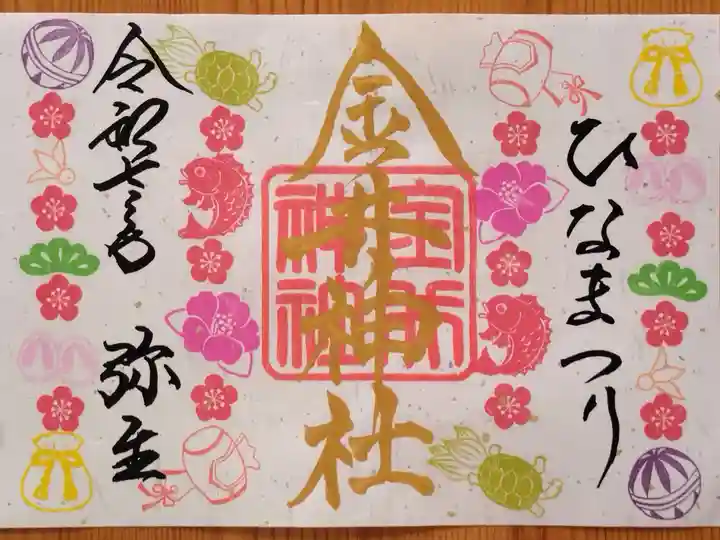 ひなまつり
金井神社
金井神社
令和七年三月
弥生